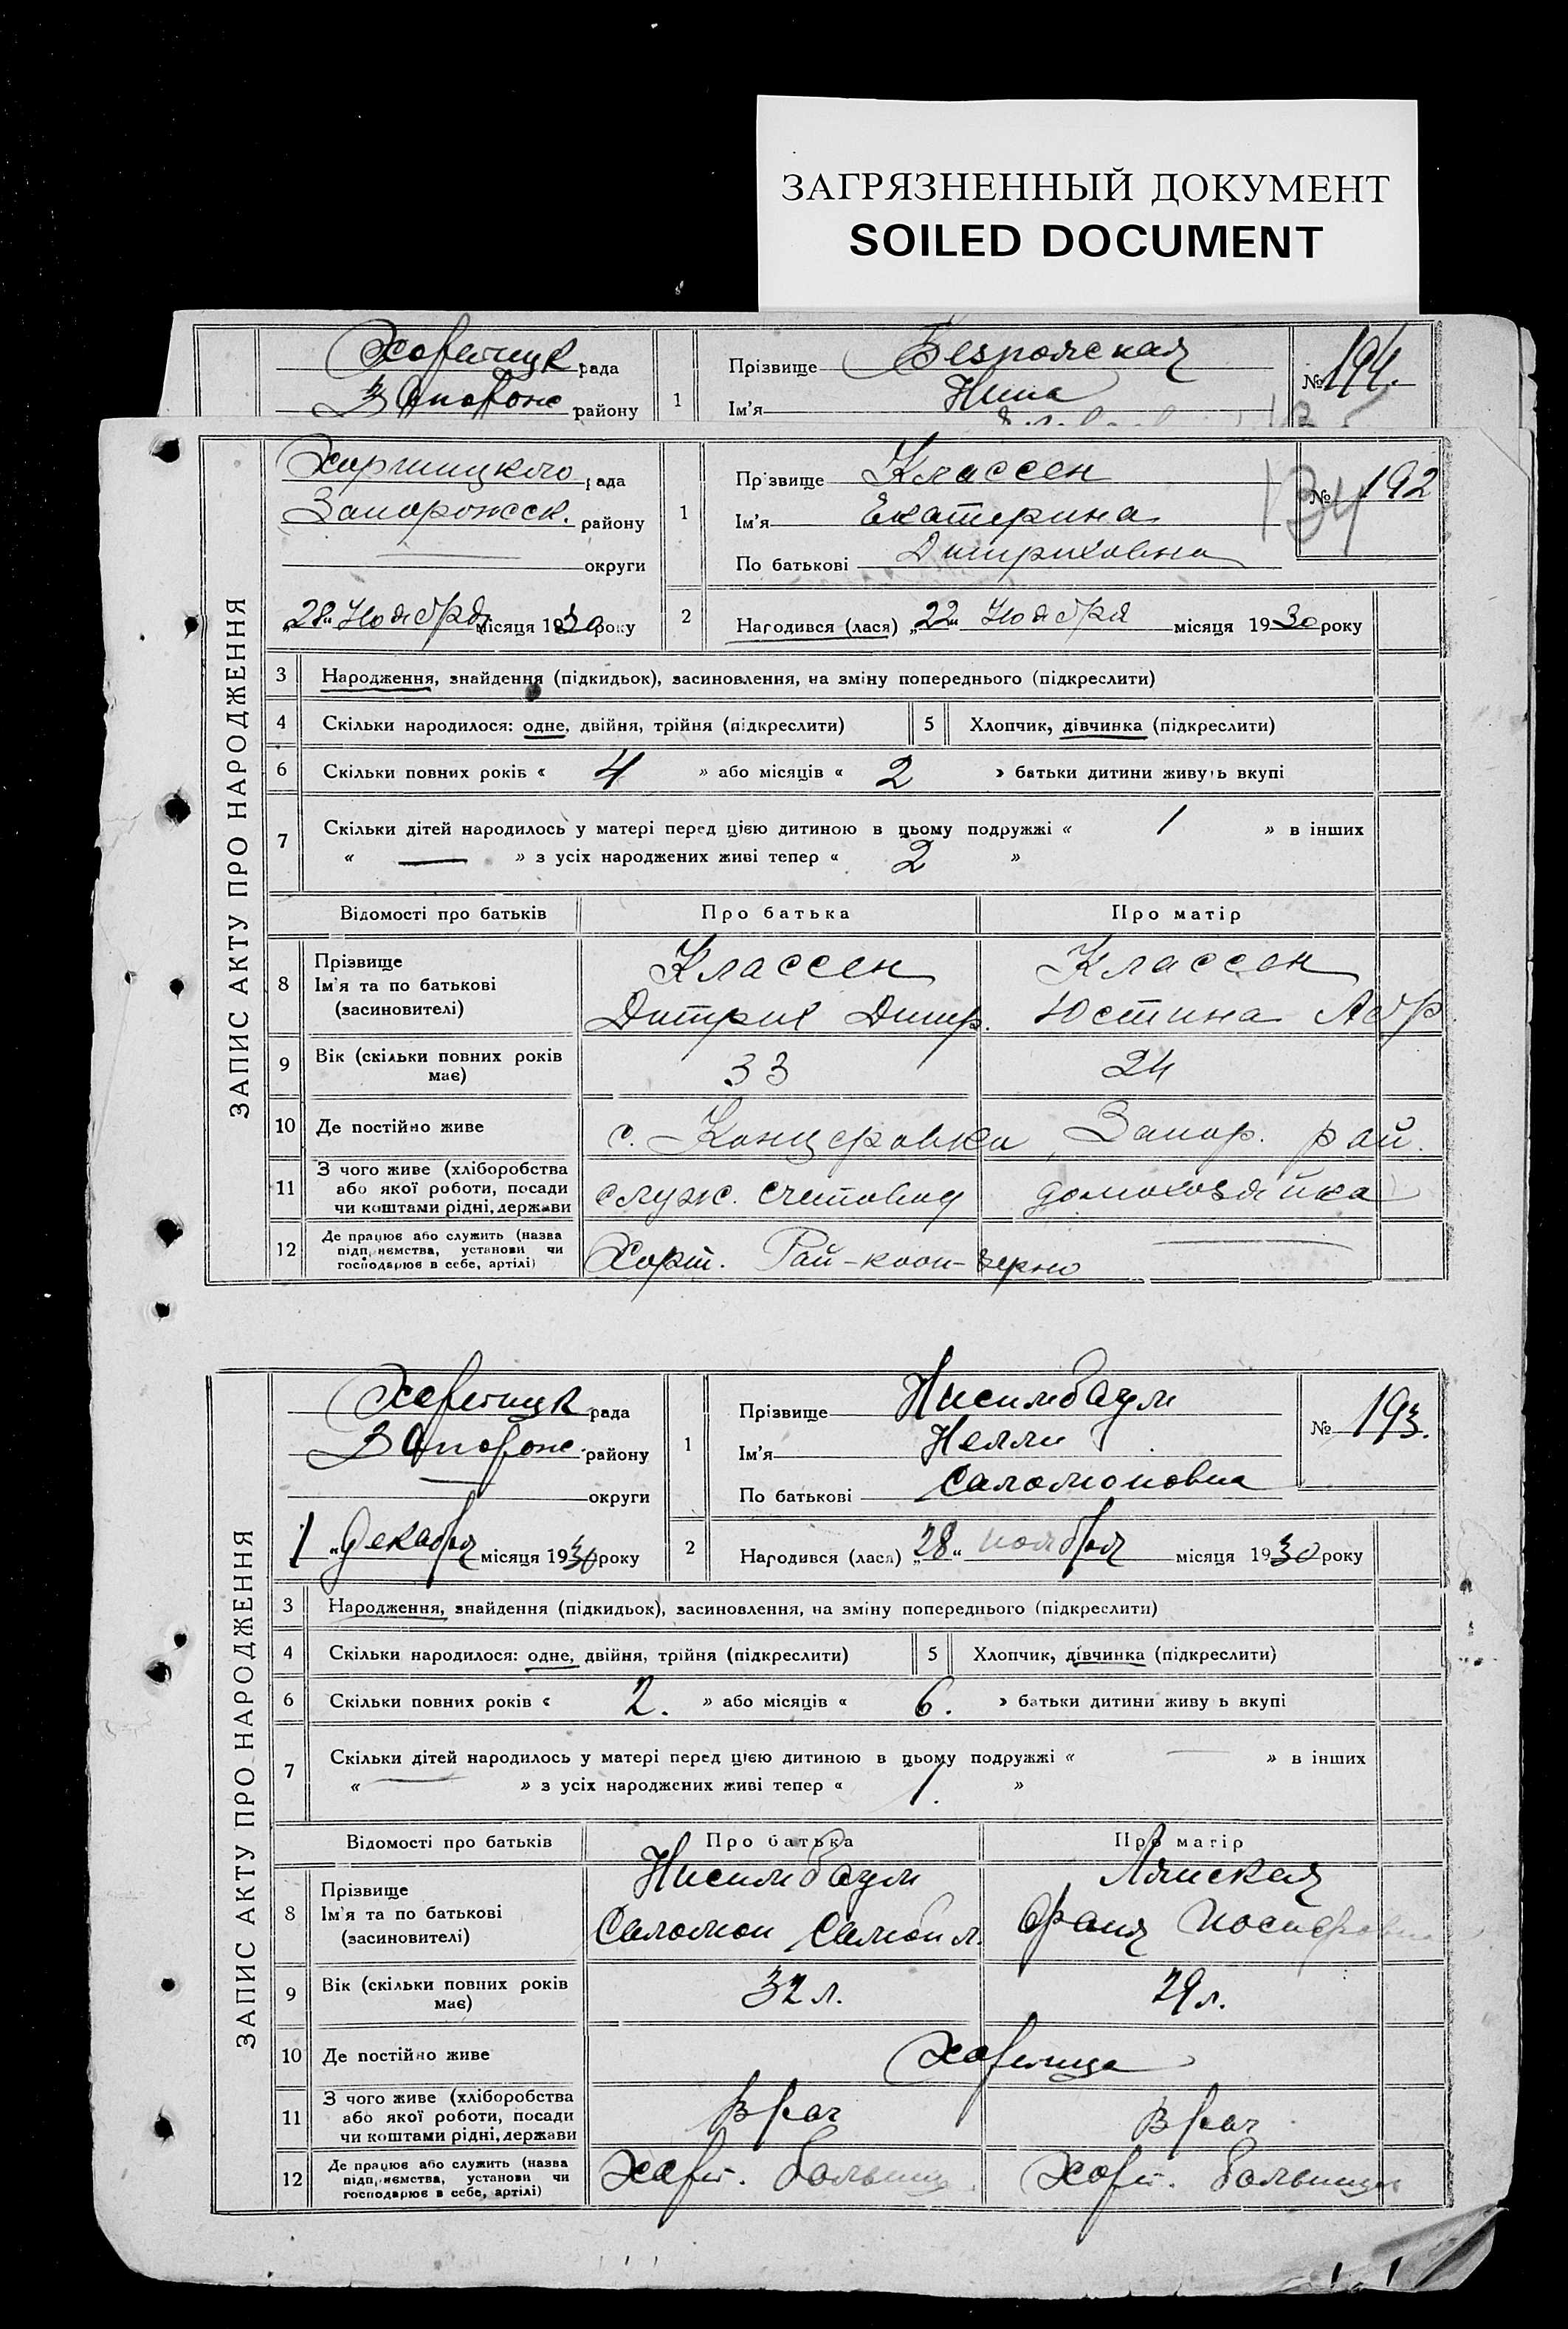 ЗАГРЯЗНЕННЫЙ ДОКУМЕНТ
SOILED DOCUMENT
Хортицк рада
Запорож району
1
Прізвище
Ім'я Нина
№ 194.
ЗАПИС АКТУ ПРО НАРОДЖЕННЯ
Хортицкого рада
Запорожск. району
округи
„28“ Ноября місяця 1930 року
1
Прізвище Классен
Ім'я Екатерина
По батькові Дитриховна
№ 192
134
2 Народився (лася) „22“ Ноября місяця 1930 року
3 Народження, знайдення (підкидьок), засиновлення, на зміну попереднього (підкреслити)
4 Скільки народилося: одне, двійня, трійня (підкреслити) 5 Хлопчик, дівчинка (підкреслити)
6 Скільки повних років « 4 » або місяців « 2 » батьки дитини живуть вкупі
7 Скільки дітей народилось у матері перед цією дитиною в цьому подружжі « 1 » в інших
« — » з усіх народжених живі тепер « 2 »
Відомості про батьків Про батька Про матір
8 Прізвище Ім'я та по батькові (засиновителі)
Классен Классен
Дитрих Дитр. Юстина Абр.
9 Вік (скільки повних років має) 33 24
10 Де постійно живе с. Канцеровка, Запор. рай.
11 З чого живе (хліборобства або якої роботи, посади чи коштами рідні, держави служ. счетовод домохозяйка
12 Де працює або служить (назва підприємства, установи чи господарює в себе, артілі) Хорт. Рай-кооп-зерно —
ЗАПИС АКТУ ПРО НАРОДЖЕННЯ
Хортицк рада
Запорож. району
округи
1 „ Декабря місяця 1930 року
1
Прізвище Нисимбаум
Ім'я Нелли
По батькові Саломоновна
№ 193.
2 Народився (лася) „28“ ноября місяця 1930 року
3 Народження, знайдення (підкидьок), засиновлення, на зміну попереднього (підкреслити)
4 Скільки народилося: одне, двійня, трійня (підкреслити) 5 Хлопчик, дівчинка (підкреслити)
6 Скільки повних років « 2. » або місяців « 6. » батьки дитини живуть вкупі
7 Скільки дітей народилось у матері перед цією дитиною в цьому подружжі « — » в інших
« — » з усіх народжених живі тепер « 1. »
Відомості про батьків Про батька Про матір
8 Прізвище Ім'я та по батькові (засиновителі)
Нисимбаум
Саломон Самойл. Фаня Иосифовна
9 Вік (скільки повних років має) 32 л. 29 л.
10 Де постійно живе Хортица
11 З чого живе (хліборобства або якої роботи, посади чи коштами рідні, держави Врач Врач
12 Де працює або служить (назва підприємства, установи чи господарює в себе, артілі) Хорт. больниц. Хорт. больница